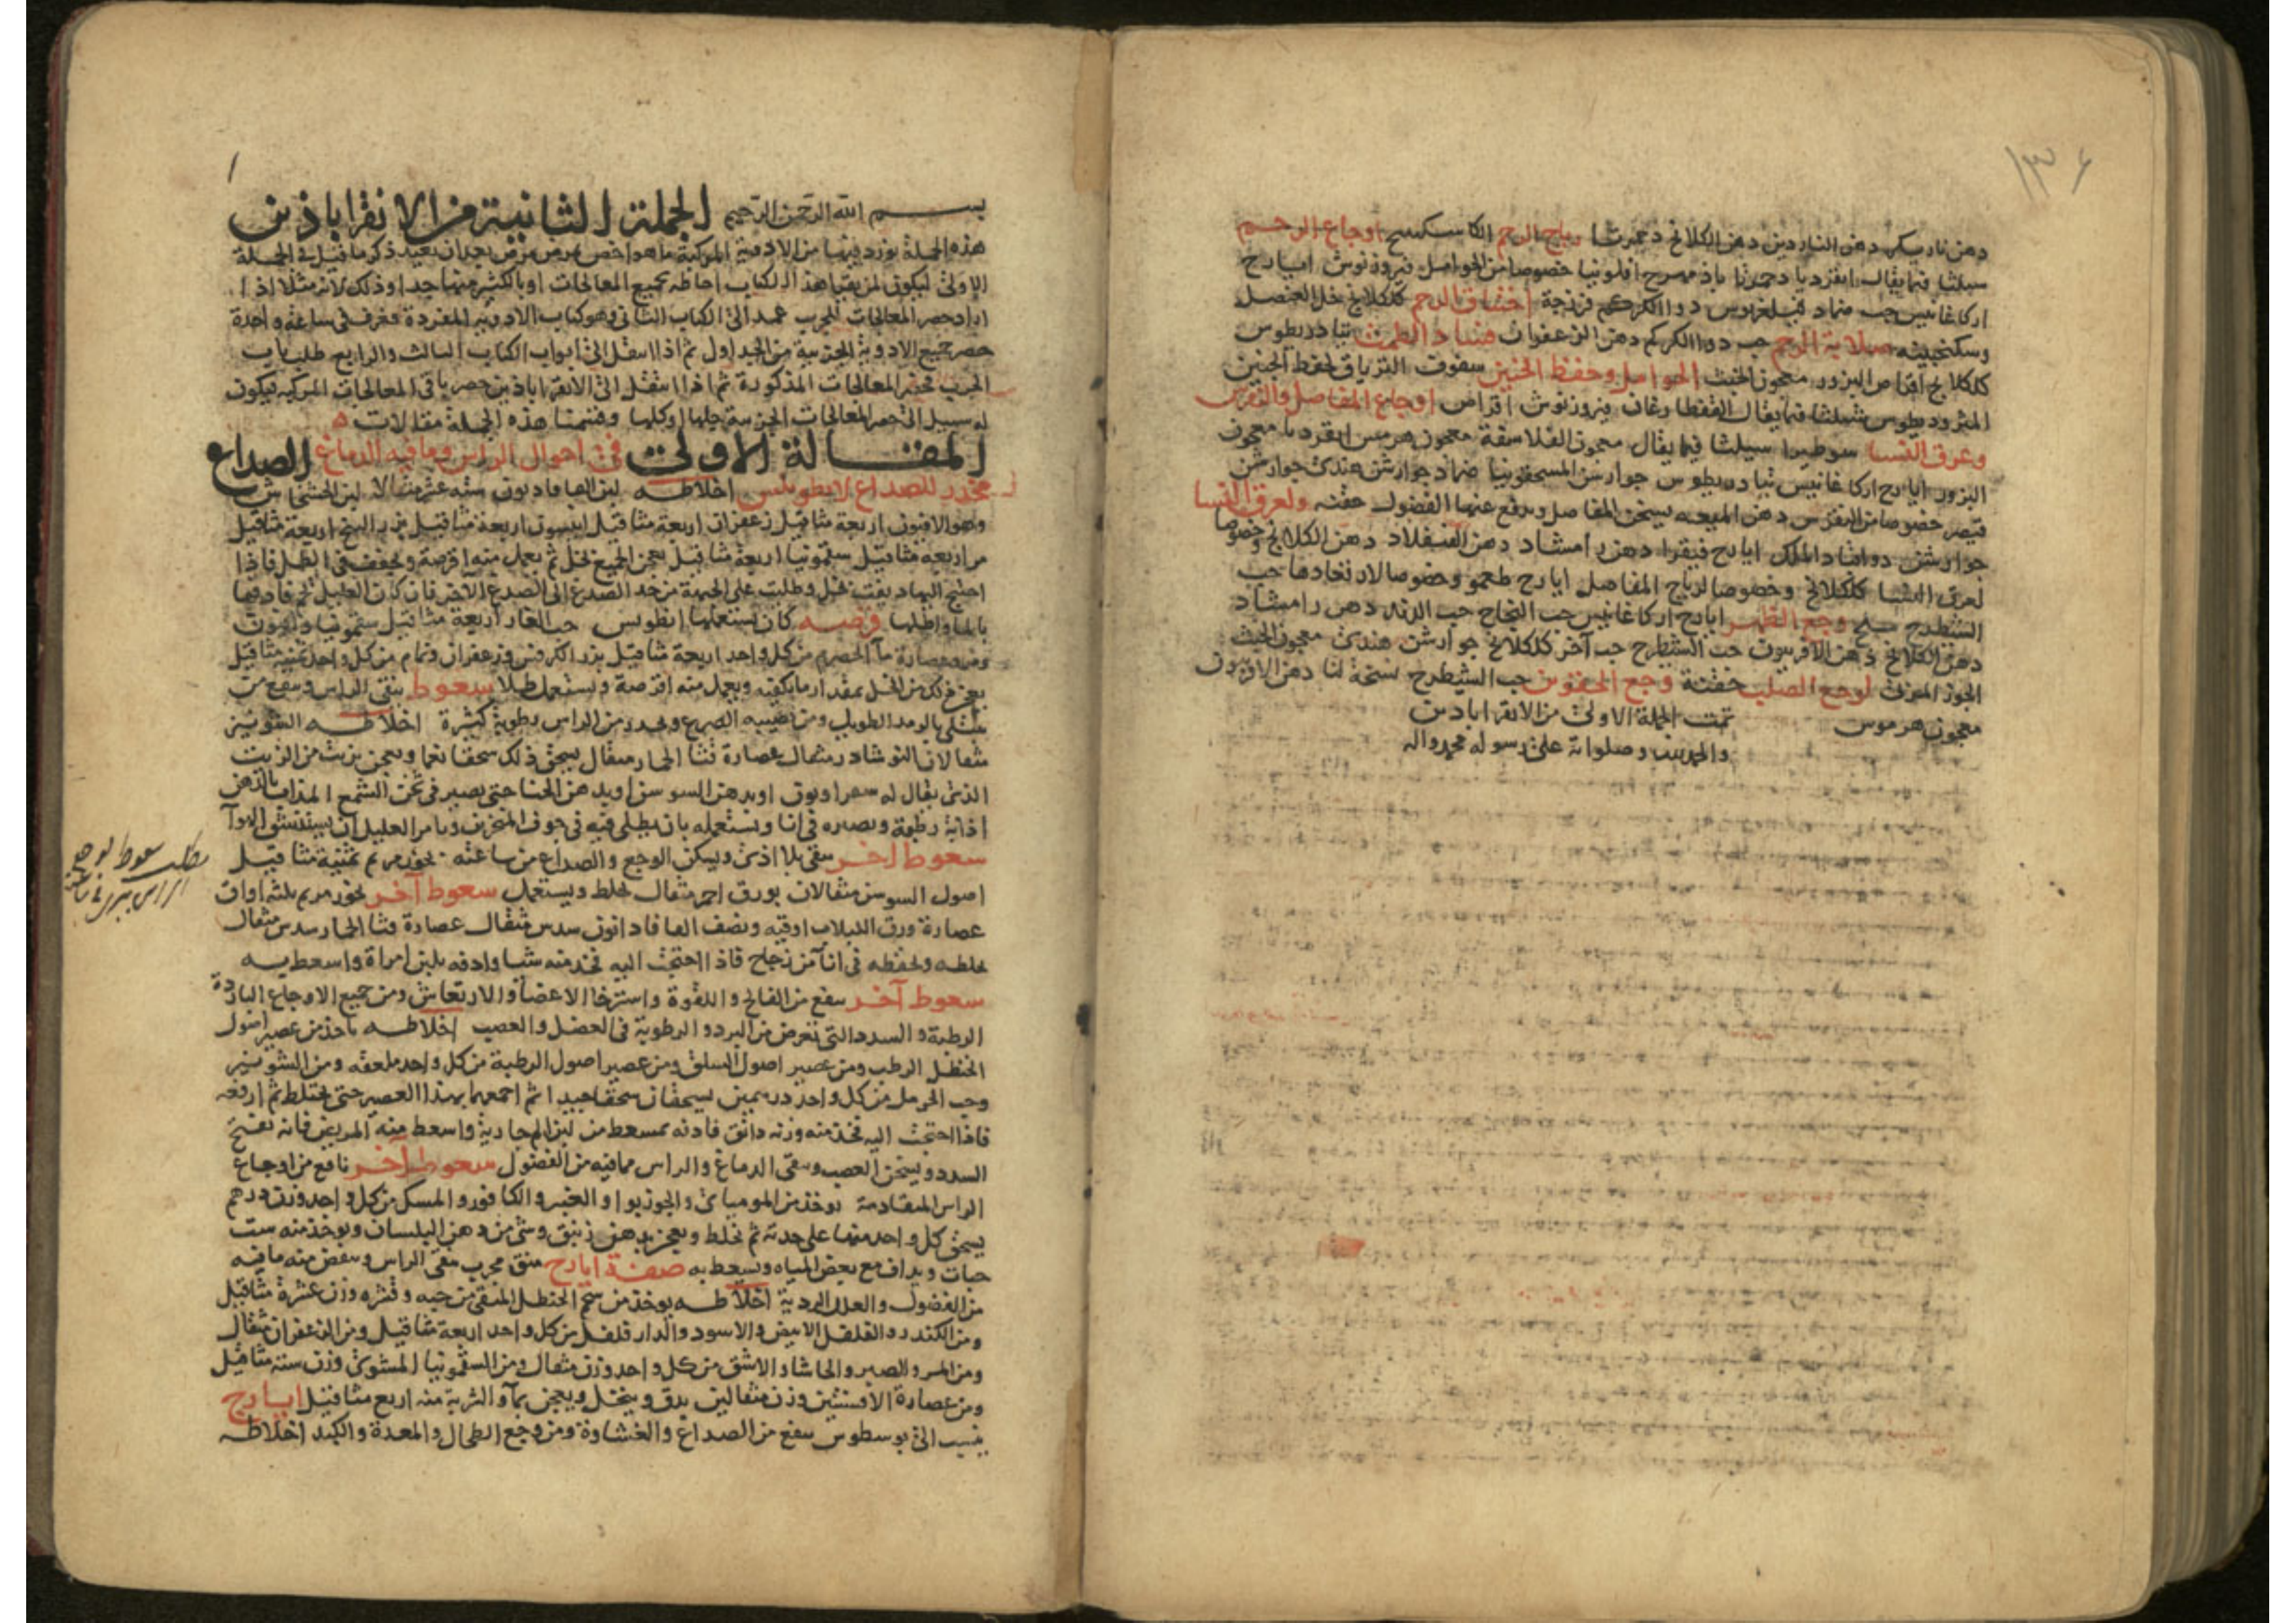 ١٣٦
دهن ناردين دهن الكلكلانج دحمرثا رياح الرحم الكاسكبينج اوجاع الرحم
سيلثا فيما يقال انقرديا دحمرثا باذمهرج افلونيا خصوصا من الحوامل فيروزنوش ايارج
اركاغانيس حب ضماد فيلغريوس دوا الكركم فرزجة اختناق الرحم كلكلانج خل العنصل
وسكنجبينه صلابة الرحم حب دوا الكركم دهن الزعفران فساد الطمث تيادريطوس
كلكلانج اقراص البزور معجون الخبث الحوامل وحفظ الجنين سفوف الترياق لحفظ الجنين
المثروديطوس شيلثا فيما يقال القفطارغان فيروزنوش اقراص اوجاع المفاصل والنقرس
وعرق النسا سوطيرا سيلثا فيما يقال معجون الفلاسفة معجون هرمس انقرديا معجون
البزور ايارج اركاغانيس تيادريطوس جوارشن السقمونيا ضماد جوارشن هندى جوارشن
قيصر خصوصا من النقرس دهن الميعه يسخن المفاصل ويدفع عنها الفضول حقنه ولعرق النسا
جوارشن دوا ايارج فيقرا دهن رامشاد دهن دهن الكلكلانج وخصوصا
لعرق النسا كلكلانج وخصوصا لرياح المفاصل ايارج وخصوصا حب
الشيطرج وجع الظهر ايارج اركاغانيس حب النجاح حب دهن رامشاد
دهن الكلكلانج دهن الافربيون حب الشيطرج حب آخر كلكلانج جوارشن هندى معجون الخبث
الجوز لوجع الصلب حقنة وجع الحقوين حب الشيطرج نسخة لنا دهن الافربيون
معجون هرموس تمت الجملة الاولى من الاقراباذين
والحمد لله وصلواته على رسوله محمد واله
١
بسم الله الرحمن الرحيم الجملة الثانية من الاقراباذين
هذه الجملة نورد فيها من الادوية المركبة ما هو اخص بمرض مرض بعد ان نعيد ذكر ما قيل فى الجملة
الاولى ليكون لمن يقرا هذا الكتاب احاطة بجميع المعالجات او باكثر منها جدا وذلك لانه مثلا اذا
اراد حصر المعالجات للجرب عمد الى الكتاب الثانى وهو كتاب الادوية المفردة فعرف فى ساعة واحدة
حصر جميع الادوية الجربية من الجداول ثم اذا انتقل الى ابواب الكتاب الثالث والرابع طلب باب
الجرب فحصر المعالجات المذكورة ثم اذا انتقل الى الاقراباذين حصر باقى المعالجات المركبه فيكون
له سبيل الى حصر المعالجات الجزئية جلها او كلها وقسمنا هذه الجملة مقالات
المقالة الاولى فى احوال الراس وما فيه الدماغ الصداع
مخدر للصداع لانطويلس اخلاطه لبن الفافاديون سته عشر مثقالا لبن الخشخاش
وهو الافيون اربعة مثاقيل زعفران اربعة مثاقيل انيسون اربعة مثاقيل بزر البنج اربعة مثاقيل
مر اربعة مثاقيل سقمونيا اربعة مثاقيل يعجن الجميع بخل ثم يعمل منه اقرصة ويجفف فى الظل فاذا
احتيج اليها ديفت بخل وطليت على الجبهة من حد الصدغ الى الصدغ الآخر فان كان العليل فدفها
بالماء واطلها قرصه كان يستعملها انطونيس حب الغار اربعة مثاقيل سقمونيا وافيون
ومر وعصارة ماء الحصرم من كل واحد اربعة مثاقيل بزر الكرفس وزعفران وتمام من كل واحد ثمنية مثاقيل
يعجن ذلك من الخل بمقدار ما يكفيه ويعمل منه اقرصة ويستعمل طلا سعوط ينقى الراس وينفع من
يبتلى بالرمد الطويل ومن نصيبه الصرع ويحدر من الراس رطوبة كثيرة اخلاطه الشونيز
مثقالان النوشادر مثقال عصارة قثا الحمار مثقال يسحق ذلك سحقا ناعما ويعجن بزيت من الزيت
الذى يقال له او بدهن السوسن او بدهن الحنا حتى يصير فى ثخن الشمع المذاب بالدهن
اذابة رطبة ويصيره فى انا ويستعمله بان يطلى فيه فى جوف المنخرين ويامر العليل ان يستنشق الهوآ
سعوط آخر ينقى بلا اذى ويسكن الوجع والصداع من ساعته بخور مريم ثمنية مثاقيل
اصول السوسن مثقالان بورق احمر مثقال يخلط ويستعمل سعوط آخر بخور مريم ثلثه اواق
عصارة ورق اللبلاب اوقيه ونصف الفافاديون سدس مثقال عصارة قثا الحمار سدس مثقال
يخلطه ويحفظه فى انآء من زجاج فاذا احتجت اليه فخذ منه شيا وادفه بلبن امراة واسعط به
سعوط آخر ينفع من الفالج واللقوة واسترخا الاعضآ والارتعاش ومن جميع الاوجاع الباردة
الرطبة والسدد التى تعرض من البرد والرطوبة فى العضل والعصب اخلاطه ياخذ من عصير اصول
الحنظل الرطب ومن عصير اصول السلق ومن عصير اصول الرطبة من كل واحد ملعقه ومن الشونيز
وحب الحرمل من كل واحد درهمين يسحقان سحقا جيدا ثم اجمعهما بهذا العصير حتى يختلط ثم ارفعه
فاذا احتجت اليه فخذ منه وزنه دانق فادفه بمسعط من لبن الجارية واسعط منه المريض فانه يفتح
السدد ويسخن العصب وينقى الدماغ والراس مما فيه من الفضول سعوط آخر نافع من اوجاع
الراس المتقادمة يوخذ من المومياى والجوزبوا والعنبر والكافور والمسك من كل واحد وزن درهم
يسحق كل واحد منها على حدته ثم يخلط ويعجن بدهن زنبق وشى من دهن البلسان ويوخذ منه ست
حبات ويداف مع بعض المياه ويسعط به صفة ايارج منق مجرب ينقى الراس وينفض منه ما فيه
من الفضول والعلل الردية اخلاطه يوخذ من شحم الحنظل المنقى من حبه وقشره وزن عشرة مثاقيل
ومن الكندر والفلفل الابيض والاسود والدارفلفل من كل واحد اربعة مثاقيل ومن الزعفران مثقال
ومن المر والصبر والحاشا والاشق من كل واحد وزن مثقال ومن السقمونيا المشوى وزن ستة مثاقيل
ومن عصارة الافسنتين وزن مثقالين يدق وينخل ويعجن بمآء والشربة منه اربع مثاقيل ايارج
ينسب الى بوسطوس ينفع من الصداع والغشاوة ومن وجع الطحال والمعدة والكبد اخلاطه
مطلب سعوط لوجع
الراس